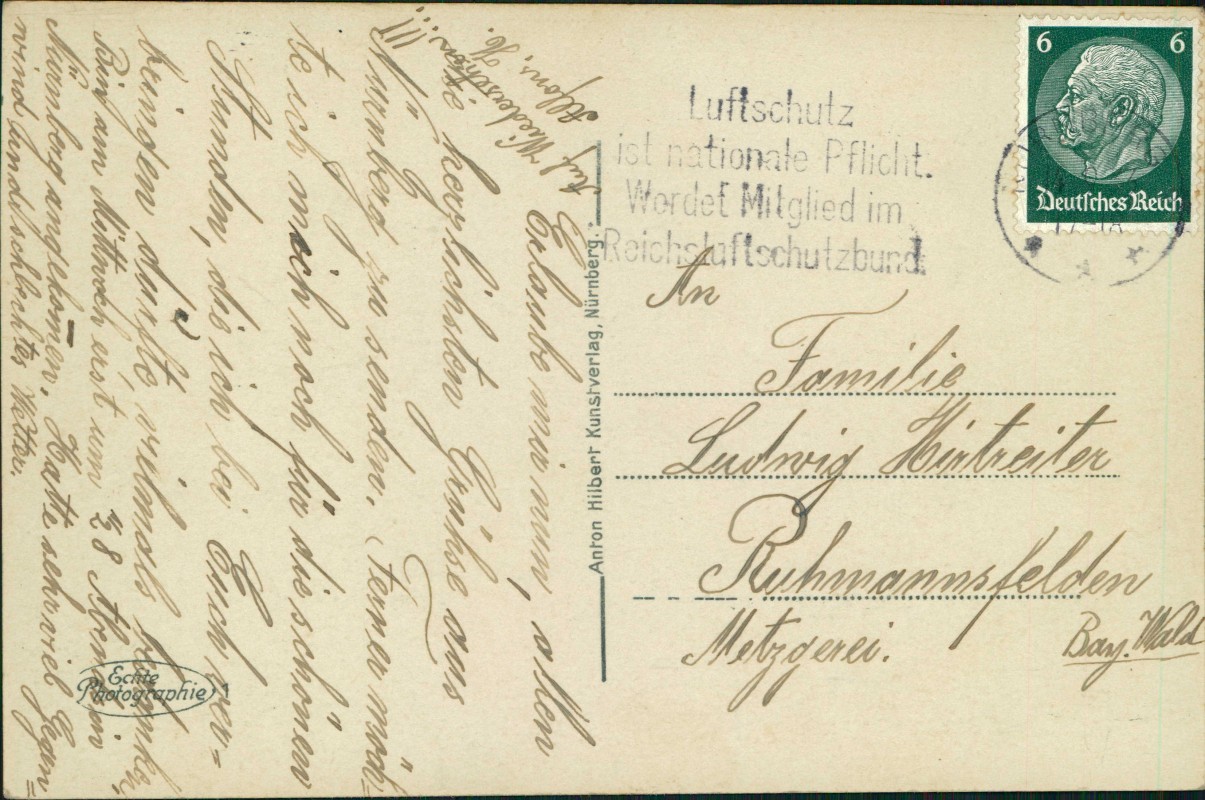 Erlaube mir nun, allen
die herzlichsten Grüße aus
Nürnberg zu senden. Ferner möch
te ich mich noch für die schönen
Stunden, die ich bei Euch ver=
bringen durfte, vielmals bedanken.
Bin am Mittwoch erst um ½ 8 Abend in
Nürnberg angekomen. Hatte sehr viel Gegen=
wind und schlechtes Wetter.
Auf Wiedersehen!!!
Alfons, H.
Anton Hilbert Kunstverlag, Nürnberg.
Echte
Photographie
Luftschutz
ist nationale Pflicht.
Werdet Mitglied im
Reichsluftschutzbund.
6 6
Deutsches Reich
An
Familie
Ludwig Hirtreiter
Ruhmannsfelden
Metzgerei. Bay. Wald